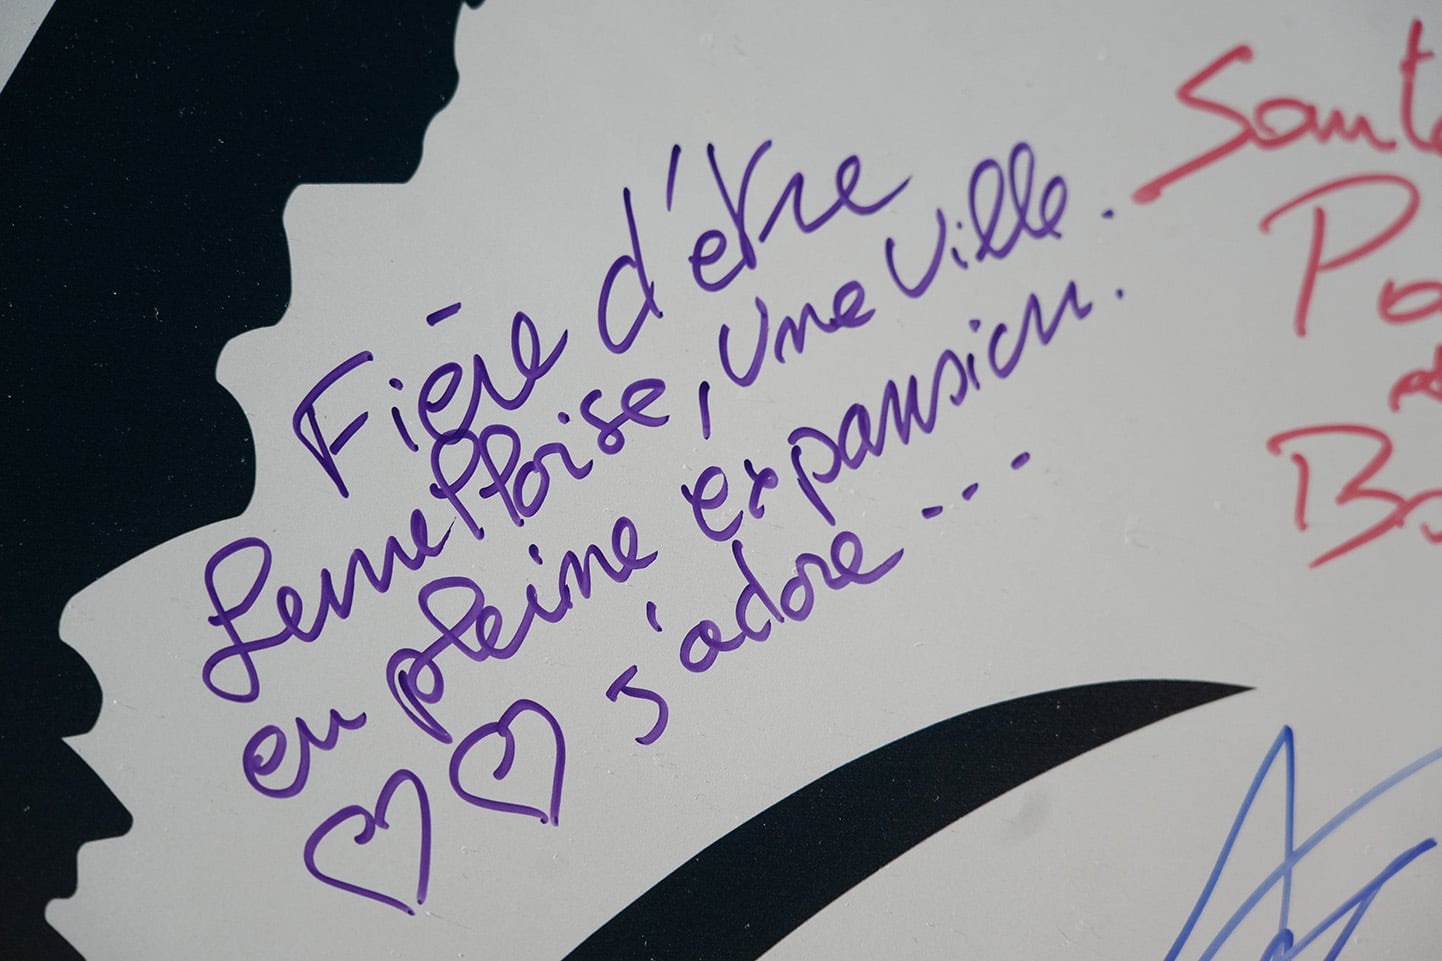 Fière d'être
Jemeppoise, une ville.
en pleine expansion.
J'adore ...